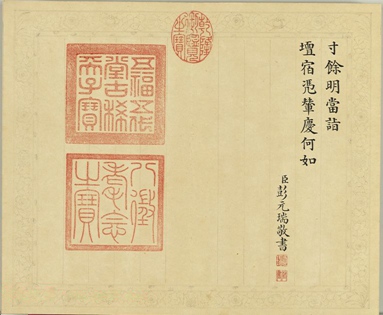 寸餘明當詣
壇宿凭輦慶何如
臣彭元瑞敬書
乾隆御覽之寶
五福五代堂古稀天子寶
八徵耄念之寶